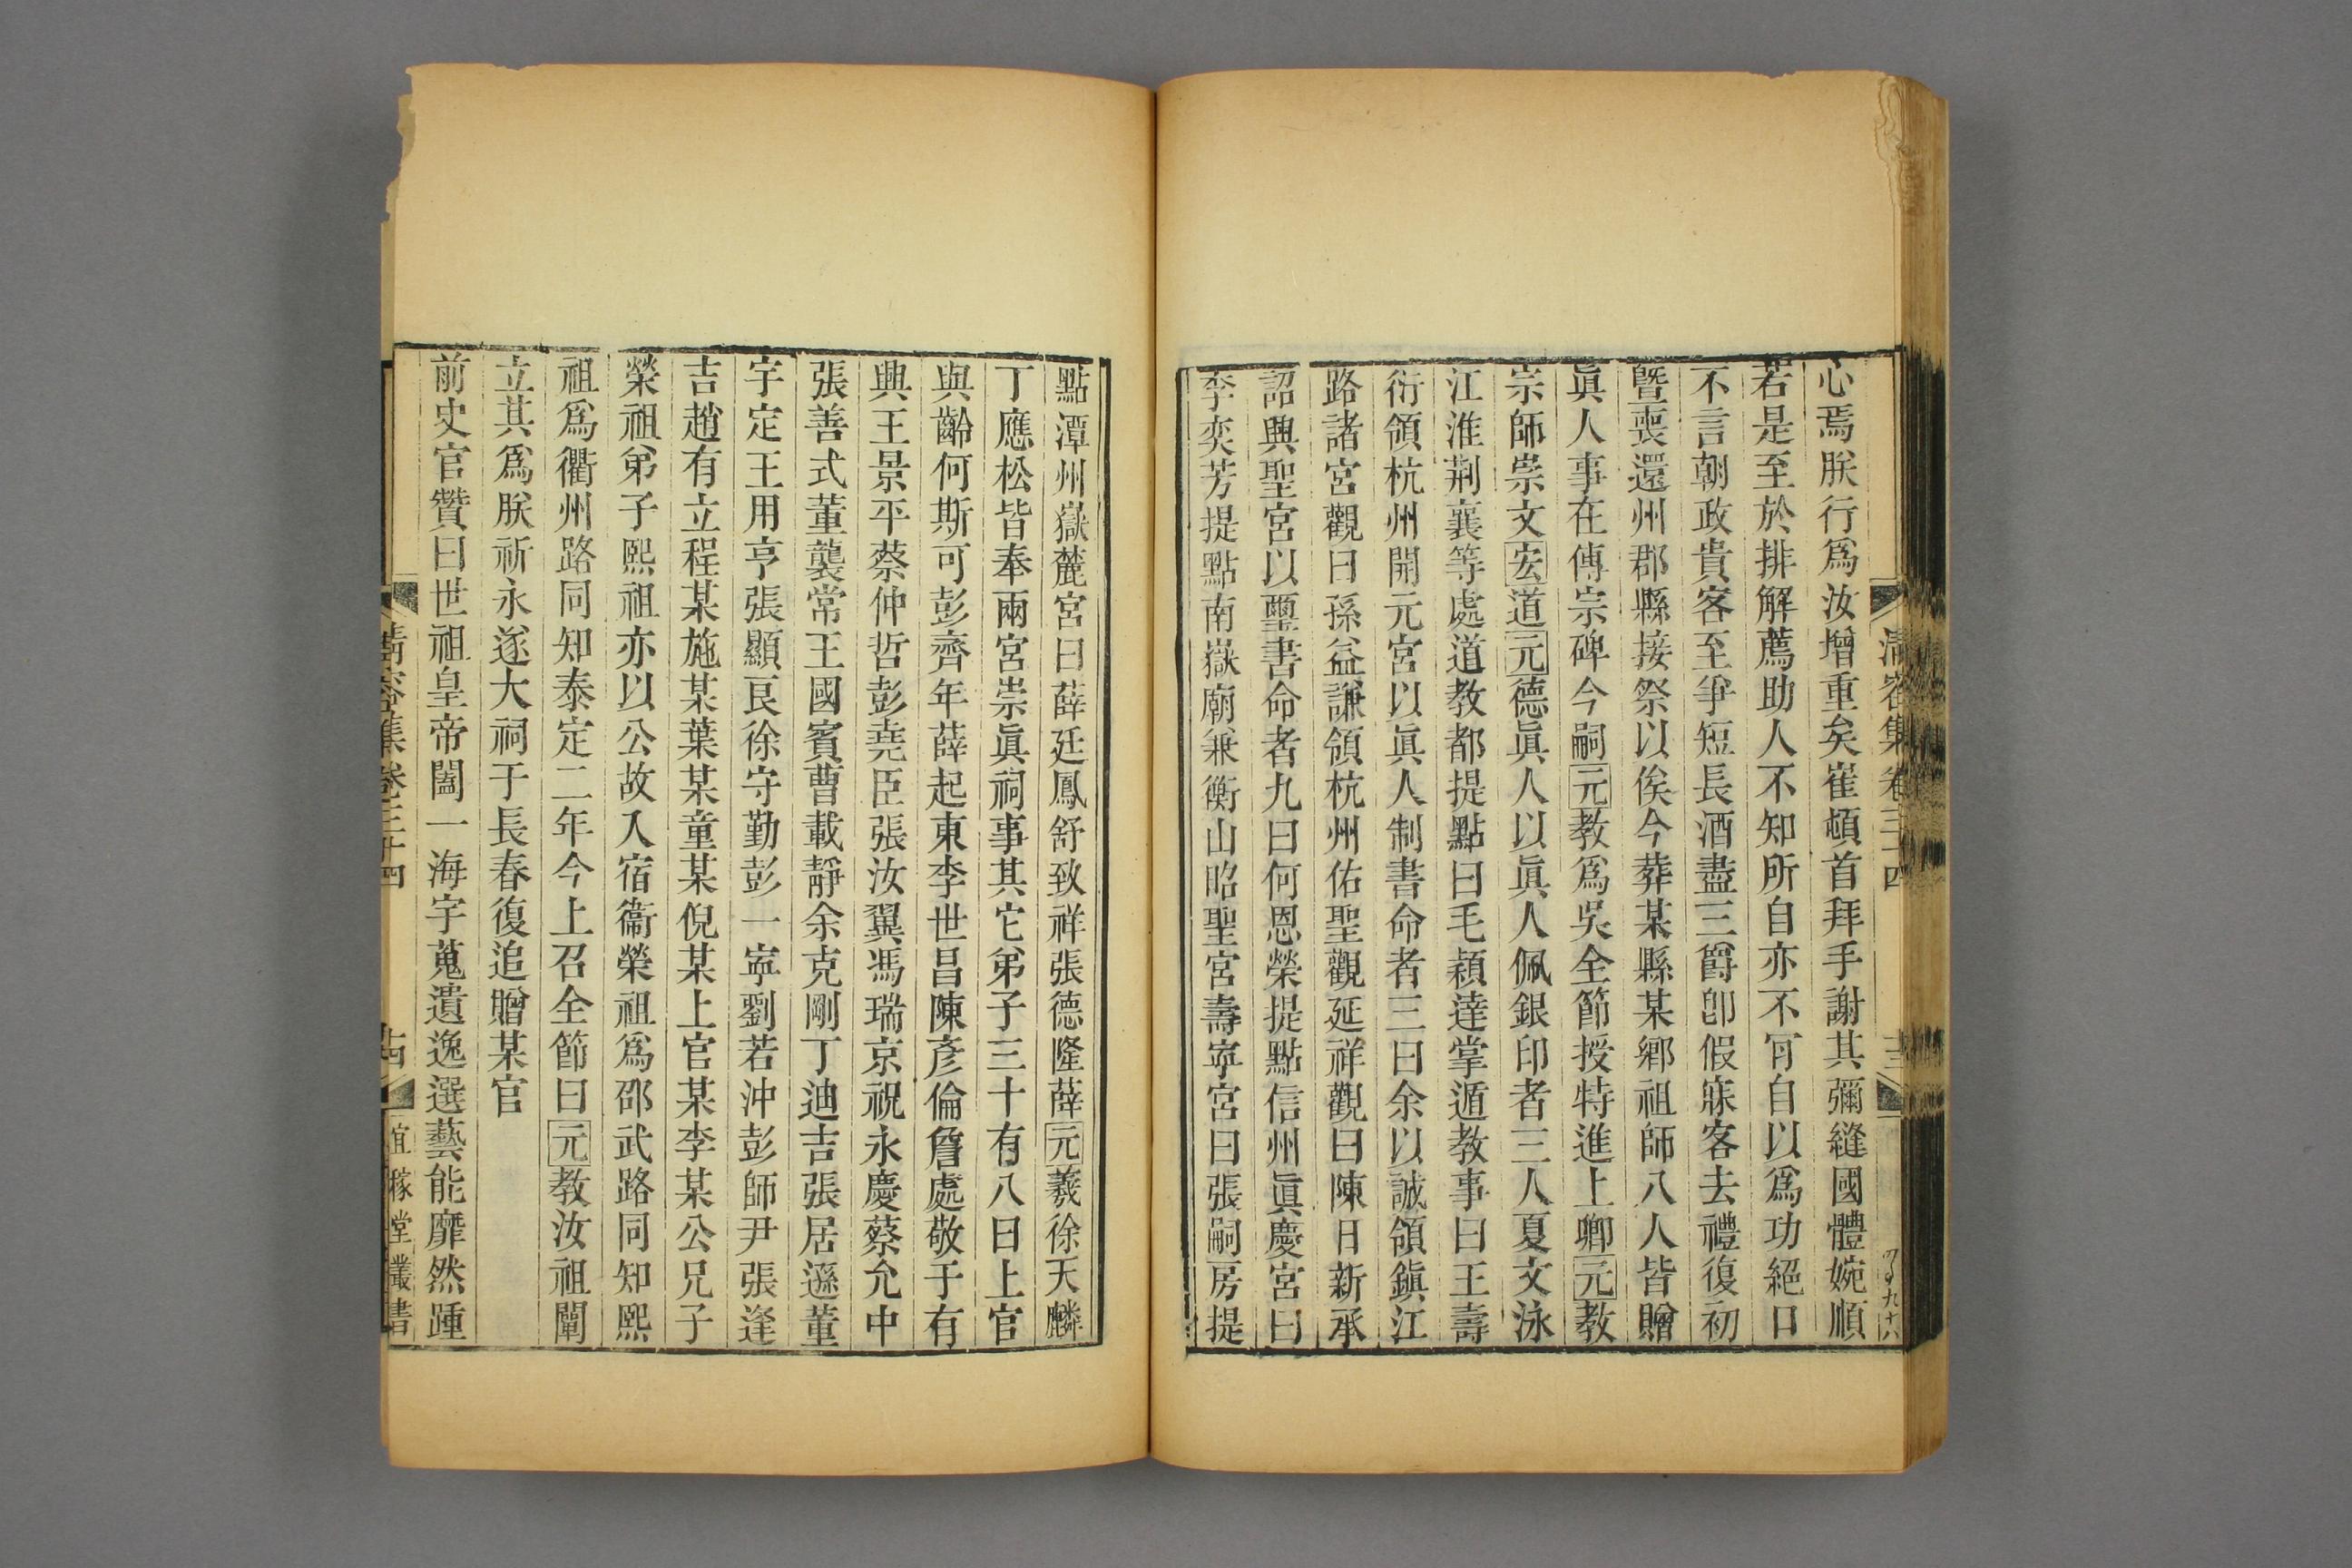 清容集卷三十四
心焉朕行爲汝增重矣崔頓首拜手謝其彌縫國體婉順
若是至於排解薦助人不知所自亦不肎自以爲功絕口
不言朝政貴客至爭短長酒盡三爵卽假寐客去禮復初
曁喪還州郡縣接祭以俟今葬某縣某鄉祖師八人皆贈
眞人事在傳宗碑今嗣元教爲吳全節授特進上卿元教
宗師崇文宏道元德眞人以眞人佩銀印者三人夏文泳
江淮荆襄等處道教都提點曰毛穎達掌遁教事曰王壽
衍領杭州開元宮以眞人制書命者三曰余以誠領鎭江
路諸宮觀曰孫益謙領杭州佑聖觀延祥觀曰陳日新承
詔興聖宮以璽書命者九曰何恩榮提點信州眞慶宮曰
李奕芳提點南嶽廟兼衡山昭聖宮壽寧宮曰張嗣房提
點潭州嶽麓宮曰薛廷鳳舒致祥張德隆薛元羲徐天麟
丁應松皆奉兩宮崇眞祠事其它弟子三十有八曰上官
與齡何斯可彭齊年薛起東李世昌陳彥倫詹處敬于有
興王景平蔡仲哲彭堯臣張汝翼馮瑞京祝永慶蔡允中
張善式董襲常王國賓曹載靜余克剛丁迪吉張居遜董
宇定王用亨張顯良徐守勤彭一寧劉若沖彭師尹張逢
吉趙有立程某施某葉某童某倪某上官某李某公兄子
榮祖弟子熙祖亦以公故入宿衞榮祖爲邵武路同知熙
祖爲衢州路同知泰定二年今上召全節曰元教汝祖闡
立其爲朕祈永遂大祠于長春復追贈某官
前史官贊曰世祖皇帝闔一海宇蒐遺逸選藝能靡然踵
清容集卷三十四
十四
宜稼堂叢書